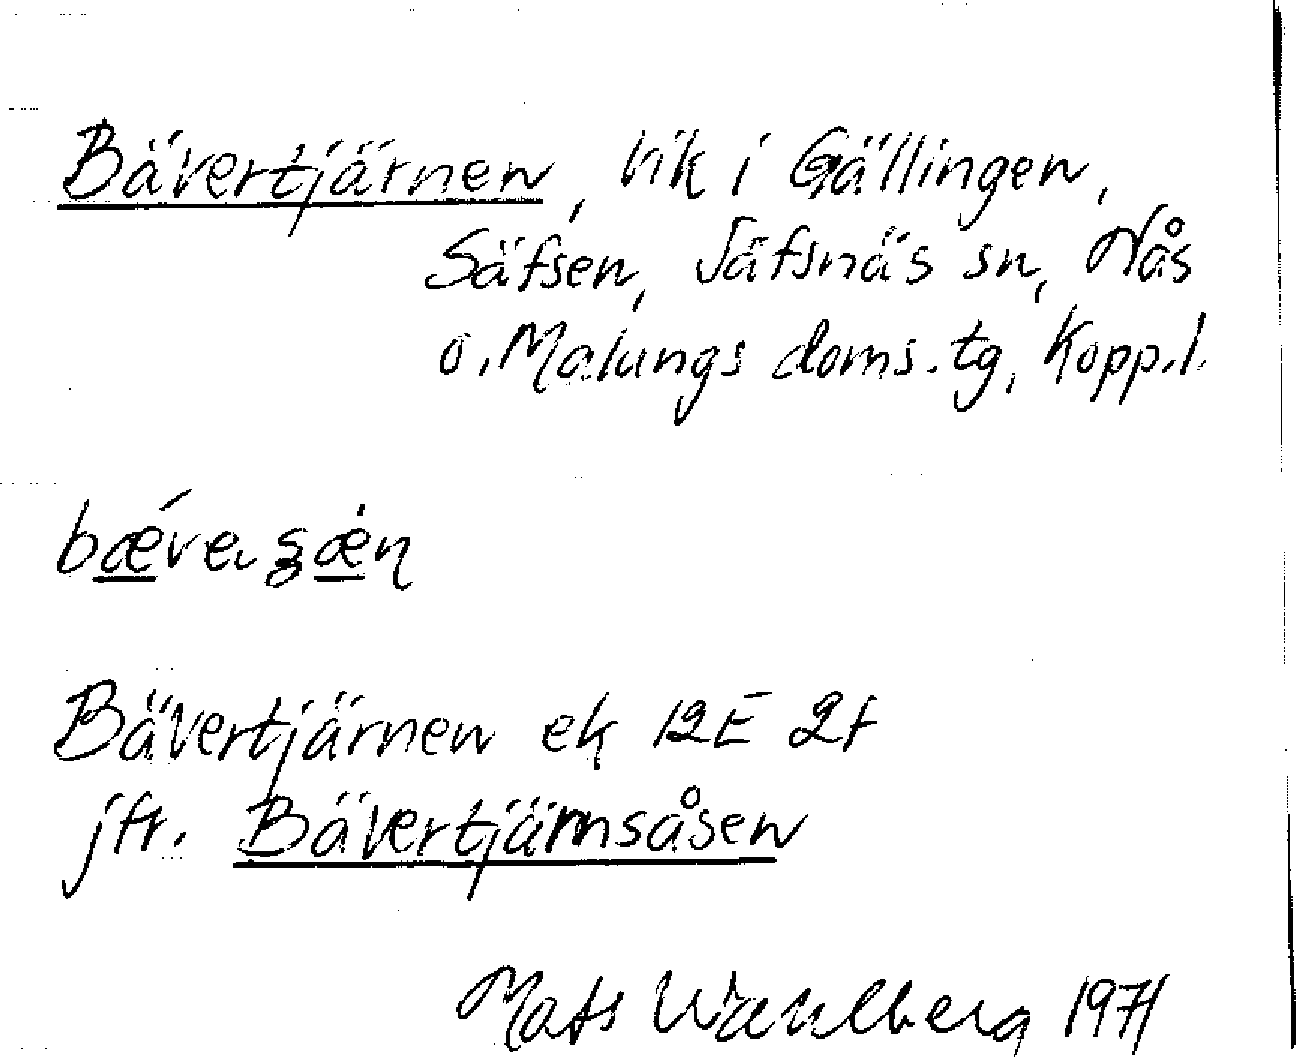 Bävertjärnen, vik i Gällingen,
Säfsen, Säfsnäs sn, Nås
o. Malungs doms. tg, Kopp. l.
Bävertjärnen ek 12E 2f
jfr. Bävertjärnsåsen
Mats Wahlberg 1971